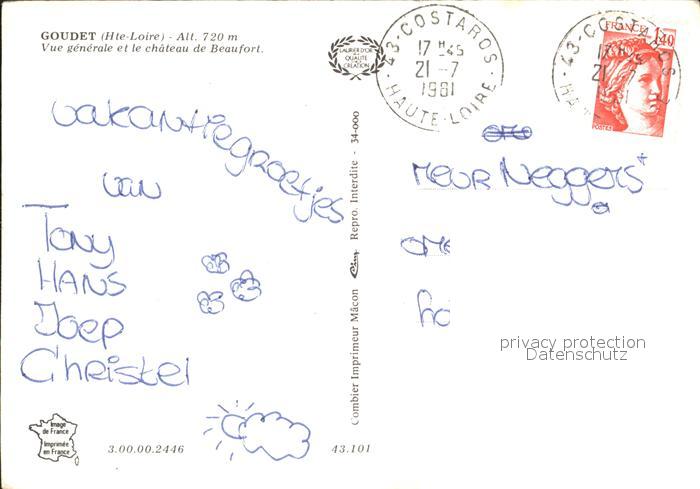 GOUDET (Hte-Loire) - Alt. 720 m
Vue générale et le château de Beaufort.
LAURIER D'OR
DE LA
QUALITÉ
CRÉATION
43-COSTAROS
17 H 45
21 -7
1981
HAUTE-LOIRE
43-COSTAROS
17 H 45
21 -7
1981
FRANCE 1,40
POSTES
vakantiegroetjes
van
Tony
HANS
Joep
Christel
MEUR Neggers
privacy protection
Datenschutz
Combier Imprimeur Mâcon Cim Repro. Interdite - 34-000
Image
de France
Imprimée
en France
3.00.00.2446
43.101